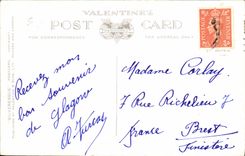 VALENTINE'S
POST CARD
FOR CORRESPONDENCE
FOR ADDRESS ONLY
Recevez mon
bon souvenir
de Glasgow
Madame Corlay
7 Rue Richelieu 7
Brest
France
Finistère